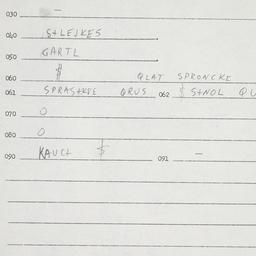 030 —
040 S+LEJKES
050 GARTL
060 $ QLAT SPRONCKE
061 SPRAS+KUE QRUS 062 $ S+NOL QU
070 O
080 O
090 KAUCH $ 091 —